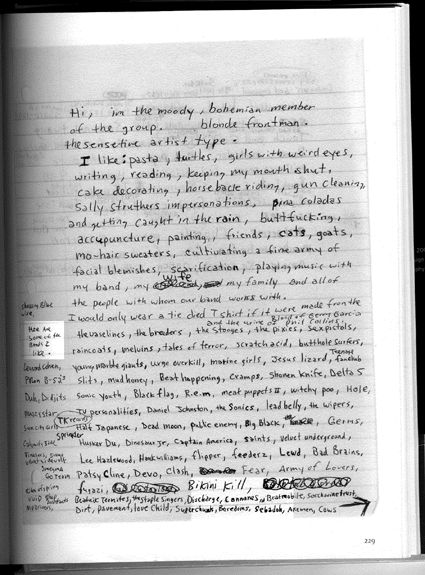 Hi, im the moody, bohemian member
of the group. blonde frontman.
the sensetive artist type.
I like: pasta, turtles, girls with weird eyes,
writing, reading, keeping my mouth shut,
cake decorating, horseback riding, gun cleaning,
Sally struthers impersonations, pina coladas
and getting caught in the rain, buttfucking,
accupuncture, painting, friends, cats, goats,
mo-hair sweaters, cultivating a fine army of
facial blemishes, scarification, playing music with
my band, my wife my family and all of
the people with whom our band works with.
I would only wear a tie died T shirt if it were made from the
Blood of Gerry Garcia
and the urine of Phil Collins.
the vaselines, the breders, the Stooges, the pixies, sexpistols,
raincoats, melvins, tales of terror, scratch acid, butthole surfers,
young marble giants, urge overkill, marine girls, Jesus lizard, Teenage fanclub
Slits, mudhoney, Beat happening, Cramps, Shonen Knife, Delta 5
Sonic youth, Black flag, R.e.m, meat puppets II, witchy poo, Hole,
TV personalities, Daniel Johnston, the Sonics, lead belly, the wipers,
Half Japanese, Dead moon, public enemy, Big Black, Germs,
Husker Du, Dinosaur jr, Captain America, saints, velvet underground,
Lee Hazlewood, Hank williams, flipper, feederz, Lewd, Bad Brains,
Patsy Cline, Devo, Clash, Fear, Army of Lovers,
fugazi, Bikini Kill,
Beatnic Termites, the staple singers, Discharge, Cannanes, Beatmobile, Saccharine trust,
Dirt, pavement, love Child, Superchunk, Boredoms, Sebadoh, Axemen, Cows
Here Are
some of the
Bands I
like.
Leonard Cohen,
B-52s
Dub, Didjits
Mazzystar
TK records
Springer
void
229